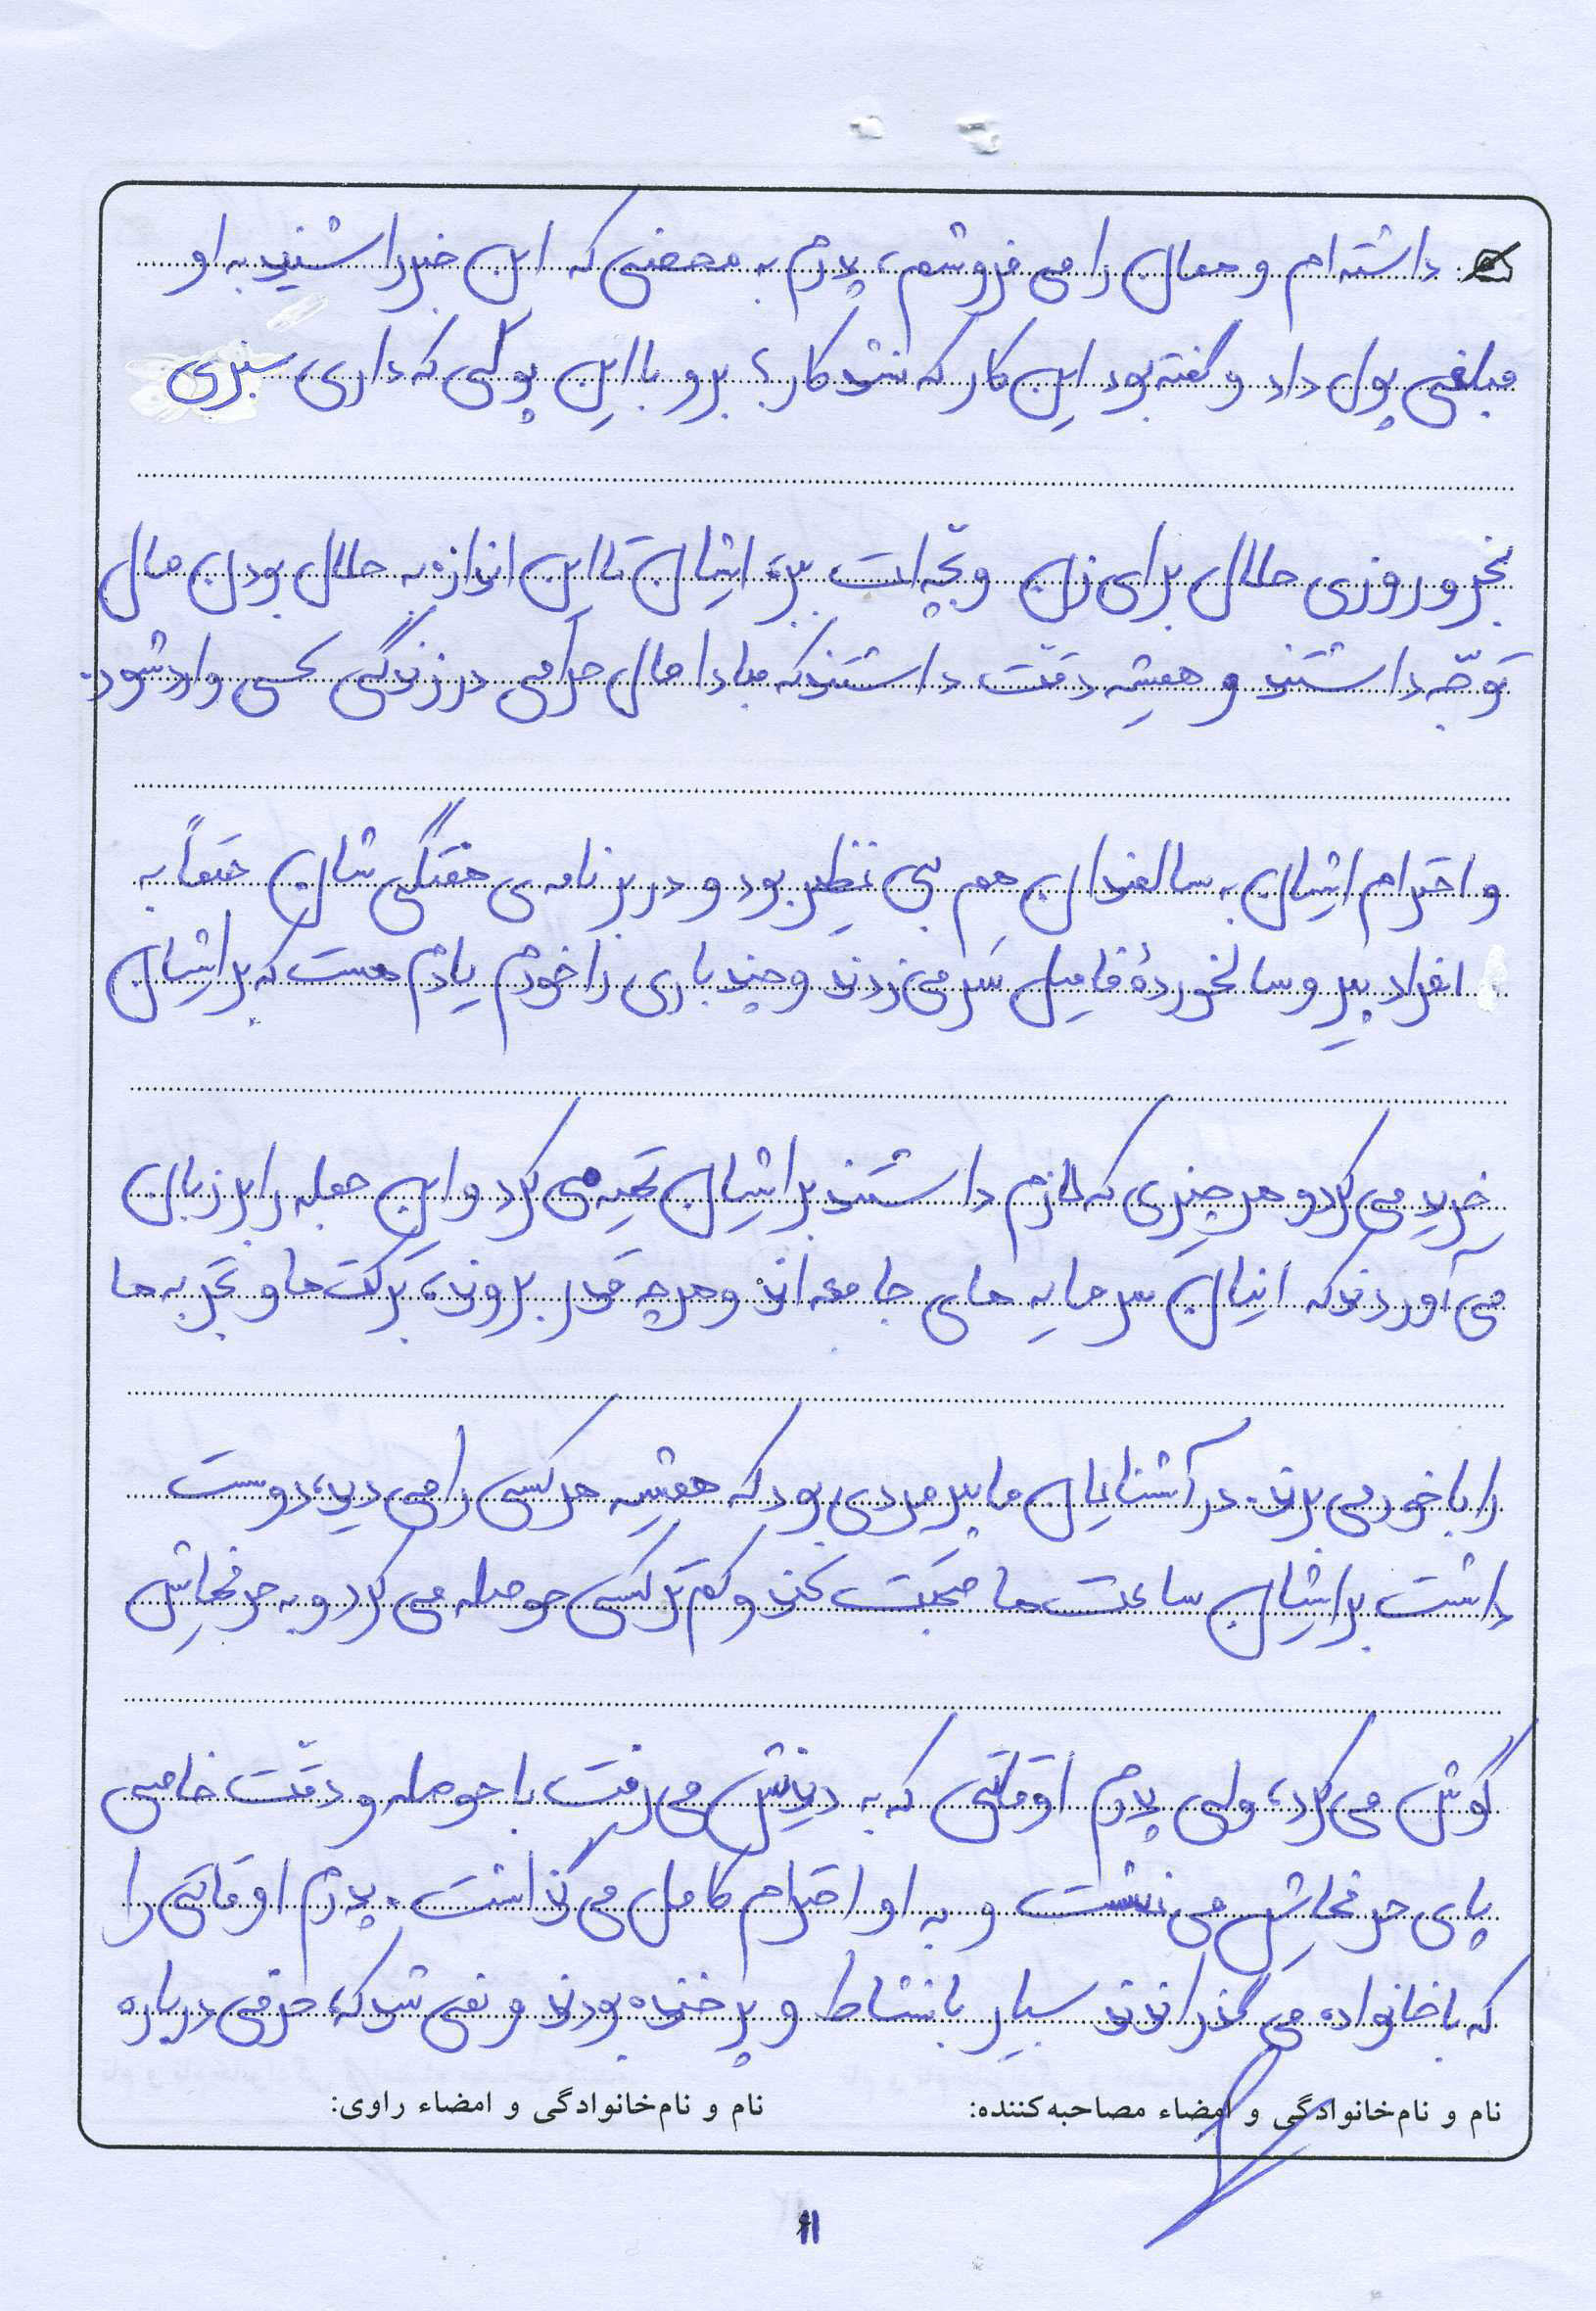 داشته ام و همان را می فروشم، پدرم به محضی که این خبر را شنید به او
مبلغی پول داد و گفته بود این کار که نشد کار؛ برو با این پولی که داری سبزی
بخر و روزی حلال برای زن و بچّه ات ببر، ایشان تا این اندازه به حلال بودن مال
توجّه داشتند و همیشه دقّت داشتند که مبادا مال حرامی در زندگی کسی وارد شود.
و احترام ایشان به سالمندان هم بی نظیر بود و در برنامه ی هفتگی شان حتماً به
افراد پیر و سالخوردهٔ فامیل سَر می زدند و چند باری را خودم یادم هست که برایشان
خرید می کرد و هر چیزی که لازم داشتند برایشان تهیه می کرد و این جمله را بر زبان
می آوردند که اینان سرمایه های جامعه اند و هر چه قدر بروند، برکت ها و تجربه ها
را با خود می برند. در آشنایان ما پیرمردی بود که همیشه هر کسی را می دید، دوست
داشت برایشان ساعت ها صحبت کند و کم تر کسی حوصله می کرد و به حرفهایش
گوش می کرد، ولی پدرم اوقاتی که به دیدنش می رفت با حوصله و دقّت خاصی
پای حرفهایش می نشست و به او احترام کامل می گذاشت. پدرم اوقاتی را
که با خانواده می گذراندند بسیار با نشاط و پر خنده بودند و نمی شد که، حرفی درباره
نام و نام‌خانوادگی و امضاء مصاحبه‌کننده: نام و نام‌خانوادگی و امضاء راوی:
11